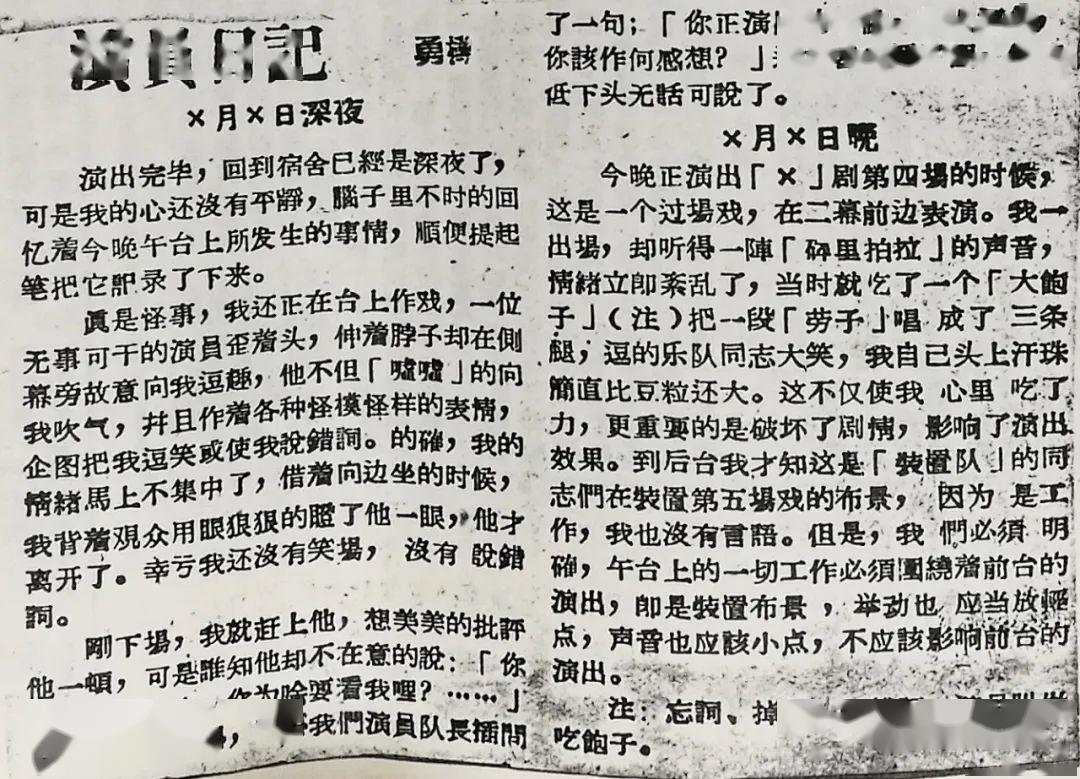 演員日記
勇
×月×日深夜
演出完毕，回到宿舍已經是深夜了，
可是我的心还沒有平靜，腦子里不时的回
忆着今晚午台上所发生的事情，順便提起
笔把它記录了下来。
眞是怪事，我还正在台上作戏，一位
无事可干的演員歪着头，伸着脖子却在侧
幕旁故意向我逗趣，他不但「噓噓」的向
我吹气，幷且作着各种怪模怪样的表情，
企图把我逗笑或使我說錯詞。的確，我的
情緒馬上不集中了，借着向边坐的时候，
我背着观众用眼狠狠的瞪了他一眼，他才
离开了。幸亏我还沒有笑場，沒有說錯
詞。
剛下場，我就赶上他，想美美的批評
他一頓，可是誰知他却不在意的說：「你
你为啥要看我哩？……」
我們演員队长插問
了一句；「你正演
你該作何感想？」
低下头无話可說了。
×月×日晚
今晚正演出「×」剧第四場的时候，
这是一个过場戏，在二幕前边表演。我一
出場，却听得一陣「砰里拍拉」的声音，
情緒立卽紊乱了，当时就吃了一个「大鉋
子」（注）把一段「劳子」唱成了三条
腿，逗的乐队同志大笑，我自己头上汗珠
簡直比豆粒还大。这不仅使我心里吃了
力，更重要的是破坏了剧情，影响了演出
效果。到后台我才知这是「裝置队」的同
志們在裝置第五場戏的布景，因为是工
作，我也沒有言語。但是，我們必須明
確，午台上的一切工作必須圍繞着前台的
演出，卽是裝置布景，举动也应当放輕
点，声音也应該小点，不应該影响前台的
演出。
注：忘詞、掉
吃鉋子。